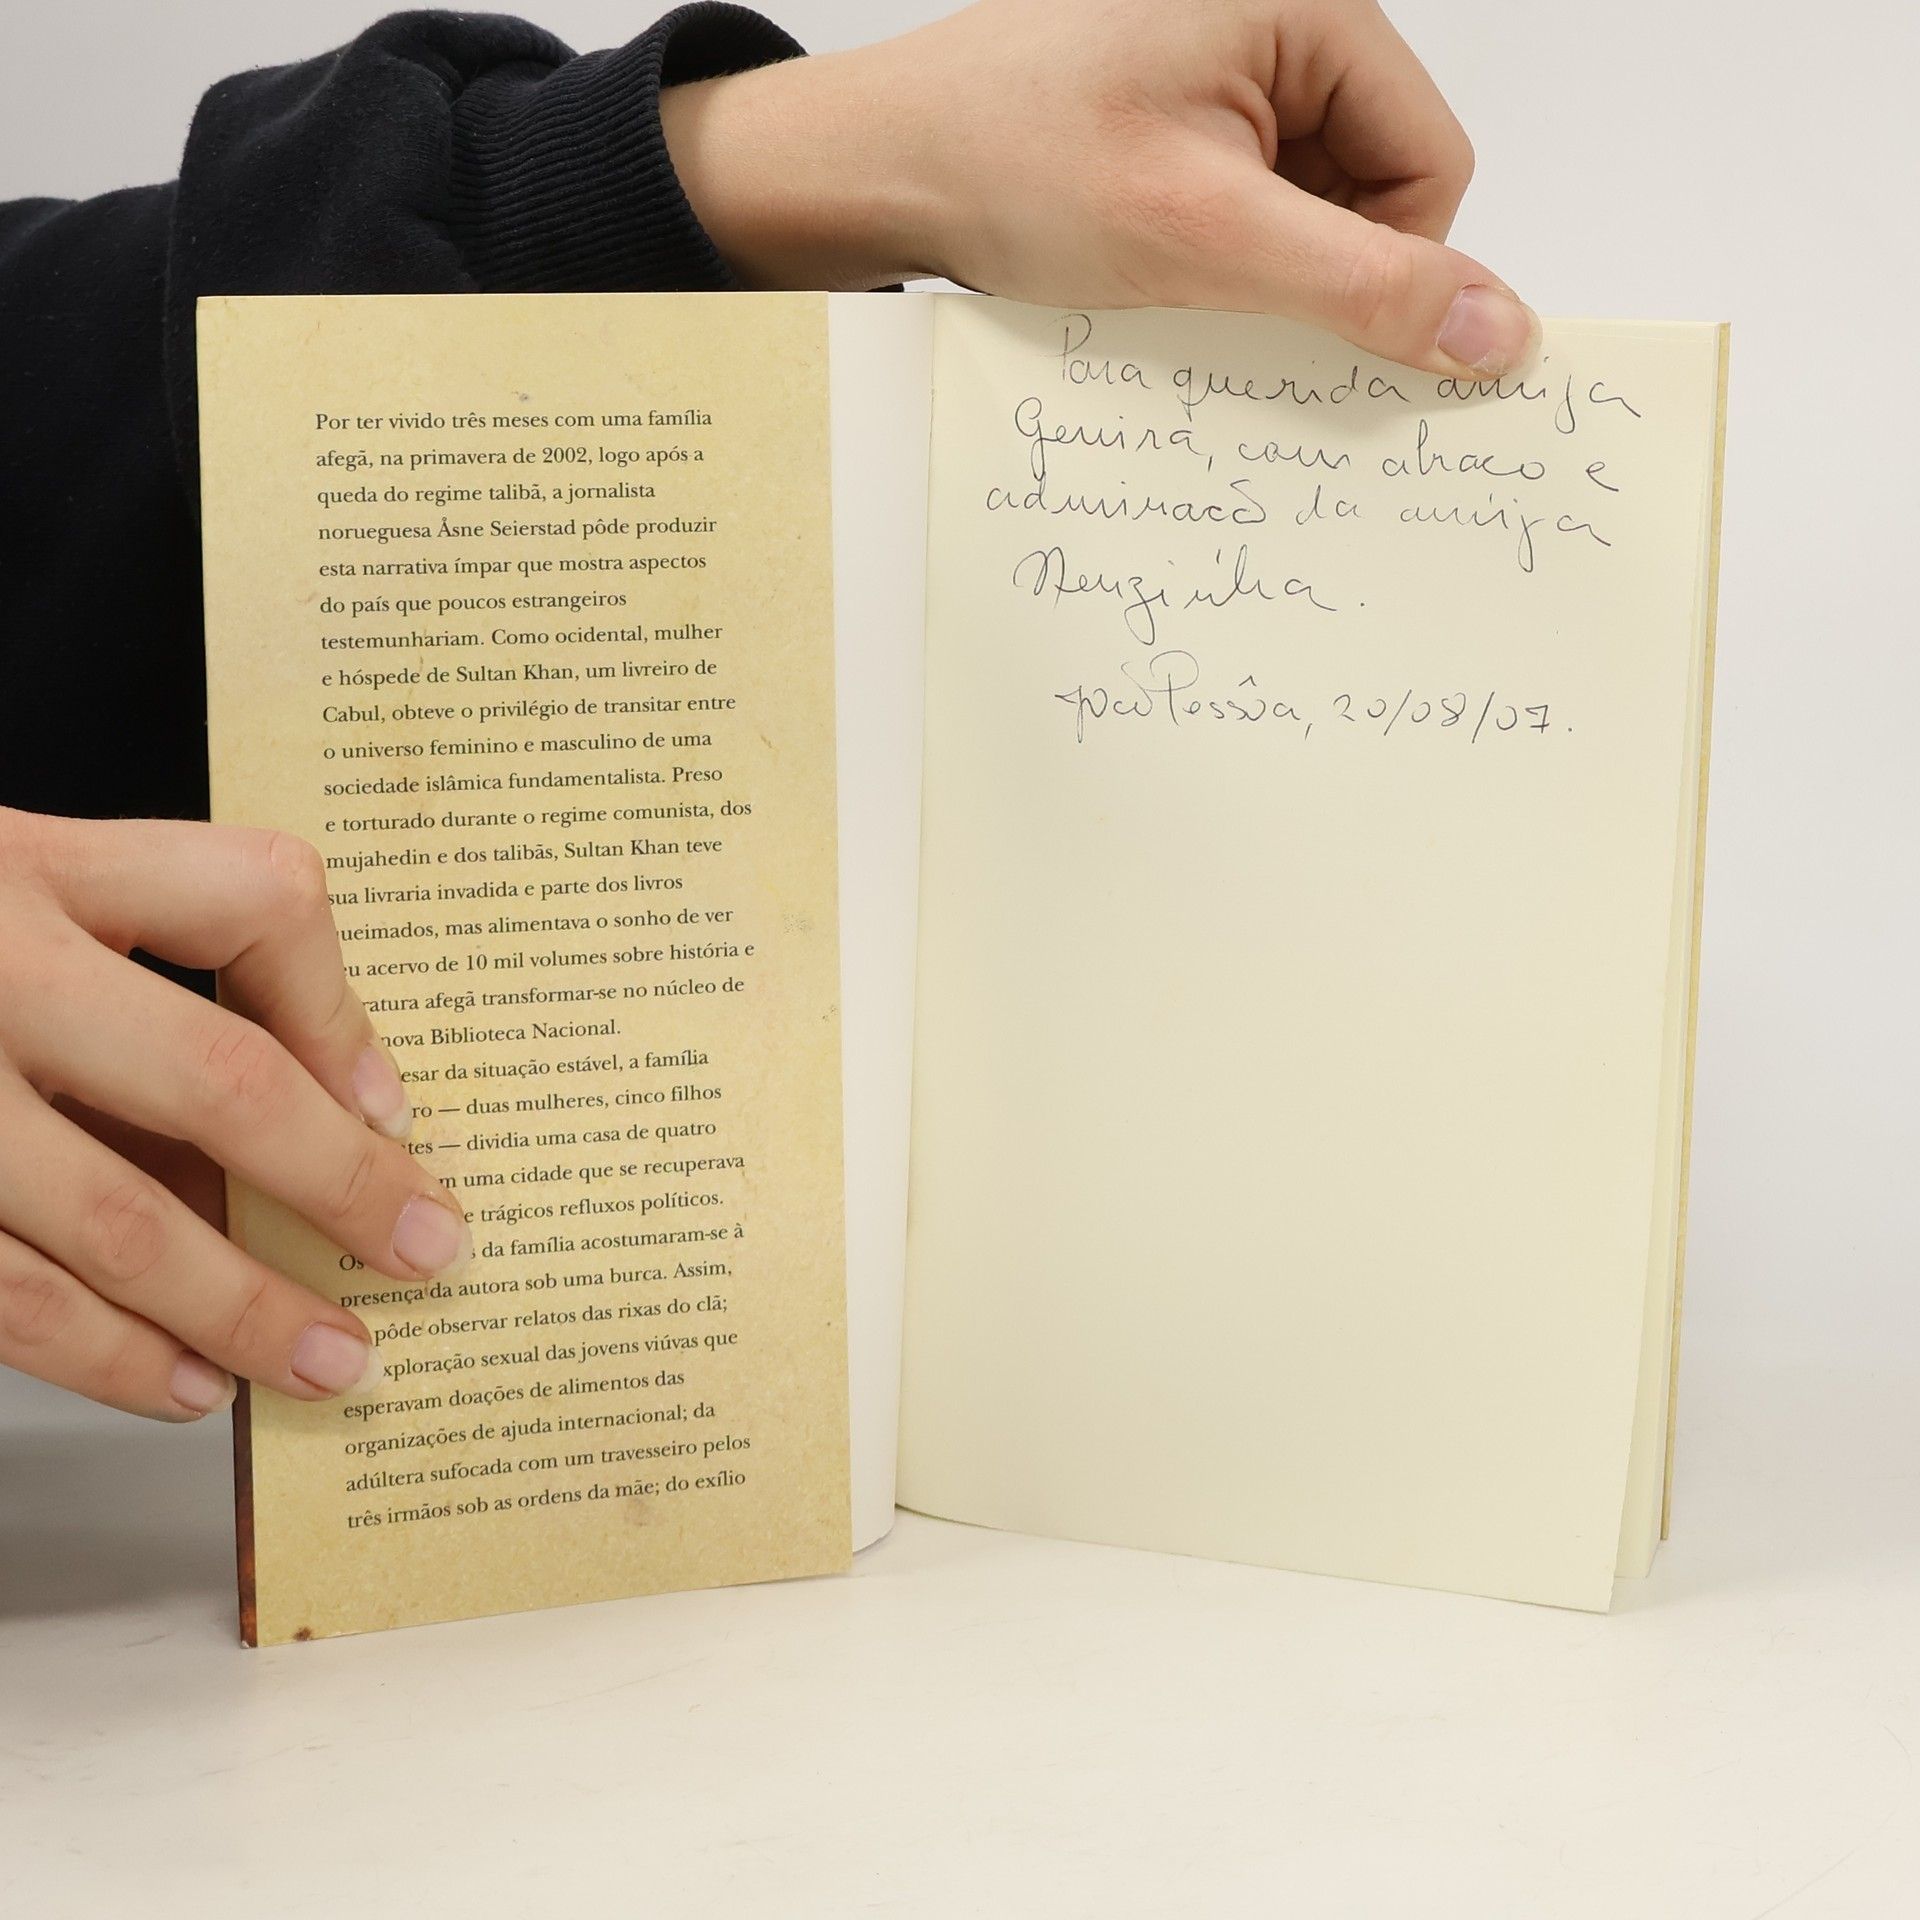 Por ter vivido três meses com uma família
afegã, na primavera de 2002, logo após a
queda do regime talibã, a jornalista
norueguesa Åsne Seierstad pôde produzir
esta narrativa ímpar que mostra aspectos
do país que poucos estrangeiros
testemunhariam. Como ocidental, mulher
e hóspede de Sultan Khan, um livreiro de
Cabul, obteve o privilégio de transitar entre
o universo feminino e masculino de uma
sociedade islâmica fundamentalista. Preso
e torturado durante o regime comunista, dos
mujahedin e dos talibãs, Sultan Khan teve
sua livraria invadida e parte dos livros
ueimados, mas alimentava o sonho de ver
eu acervo de 10 mil volumes sobre história e
ratura afegã transformar-se no núcleo de
nova Biblioteca Nacional.
esar da situação estável, a família
ro — duas mulheres, cinco filhos
tes — dividia uma casa de quatro
m uma cidade que se recuperava
e trágicos refluxos políticos.
Os s da família acostumaram-se à
presença da autora sob uma burca. Assim,
pôde observar relatos das rixas do clã;
xploração sexual das jovens viúvas que
esperavam doações de alimentos das
organizações de ajuda internacional; da
adúltera sufocada com um travesseiro pelos
três irmãos sob as ordens da mãe; do exílio
Para querida amiga
Genira, com abraco e
admiracão da amiga
Neuzinha.
João Pessôa, 20/08/07.